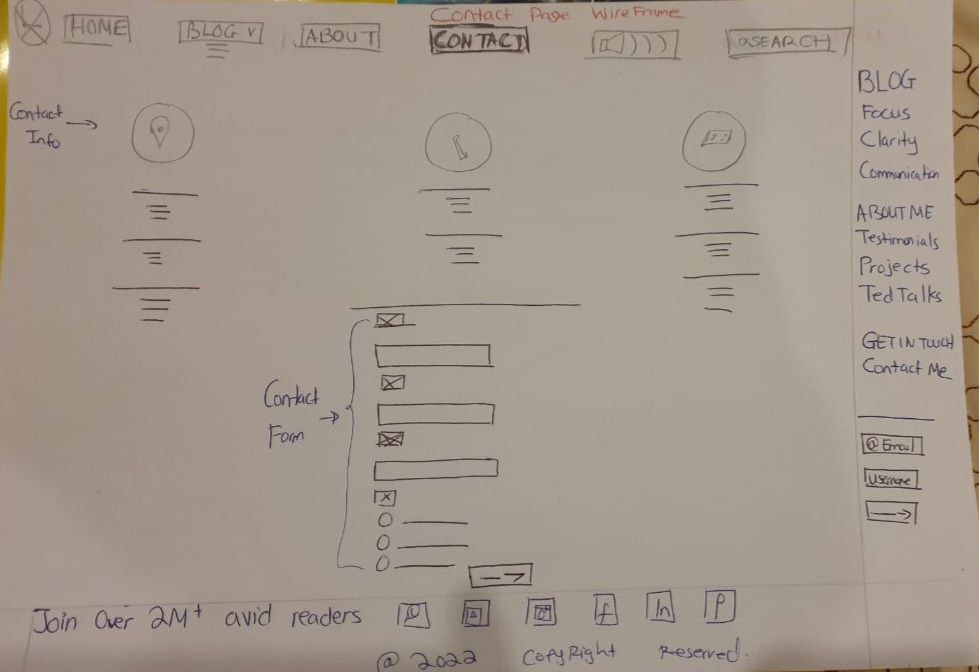 Contact Page WireFrame
HOME
BLOG v
ABOUT
CONTACT
SEARCH
Contact
Info
BLOG
Focus
Clarity
Communication
ABOUT ME
Testimonials
Projects
Ted Talks
GET IN TOUCH
Contact Me
@ Email
Username
Contact
Form
Join Over 2M+ avid readers
f
In
P
@ 2022 CopyRight Reserved.